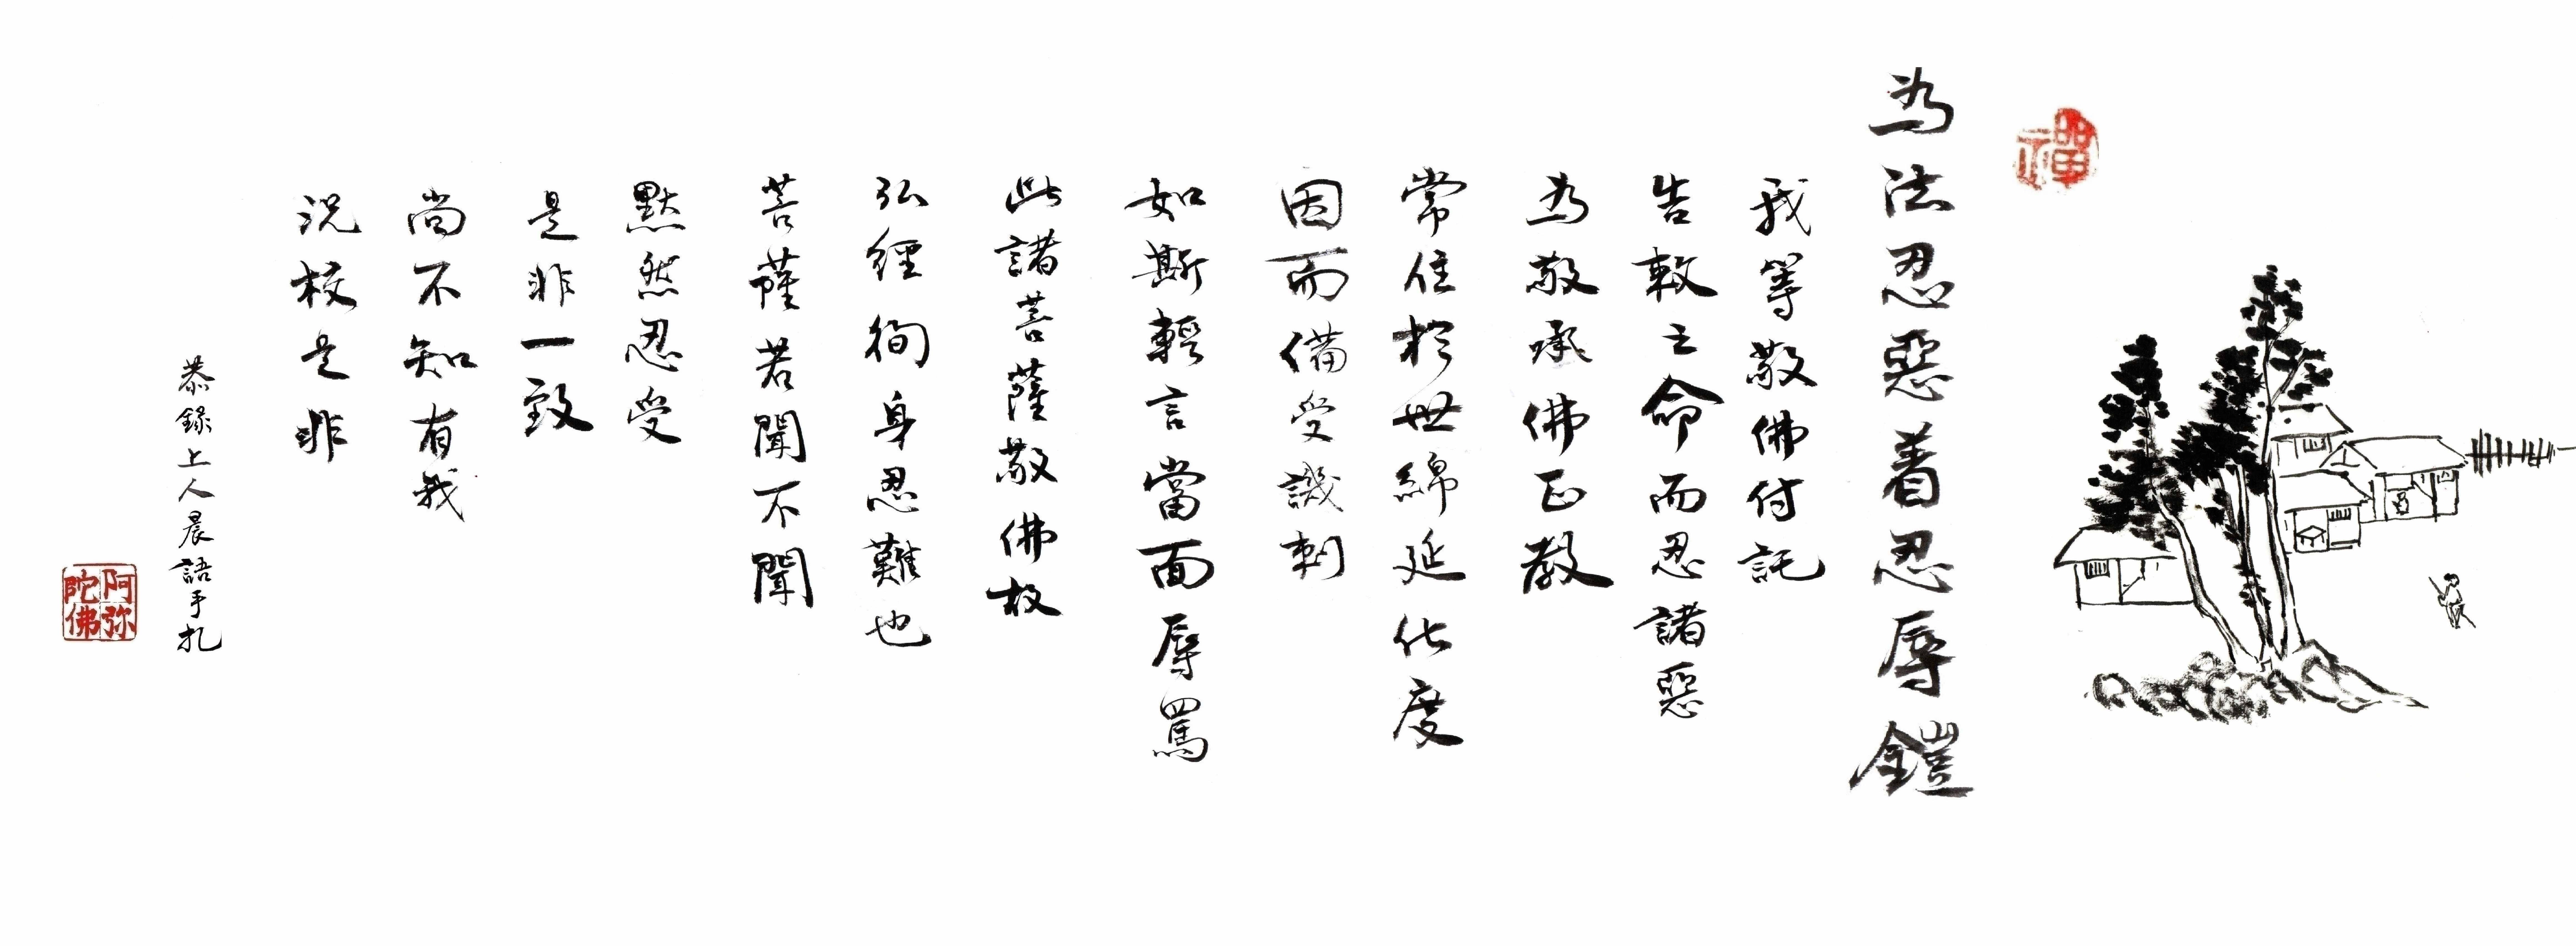 禪
為法忍惡着忍辱鎧
我等敬佛付託
告敕之命而忍諸惡
為敬承佛正教
常住於世綿延化度
因而備受譏刺
如斯輕言當面辱罵
此諸菩薩敬佛故
弘經徇身忍難也
菩薩若聞不聞
默然忍受
是非一致
尚不知有我
況校是非
恭錄上人晨語手扎
阿弥
陀佛